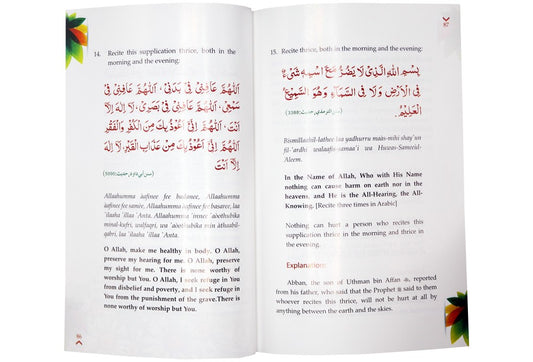 14. Recite this supplication thrice, both in the
morning and the evening:
اَللّٰهُمَّ عَافِنِيْ فِيْ بَدَنِيْ، اَللّٰهُمَّ عَافِنِيْ فِيْ
سَمْعِيْ، اَللّٰهُمَّ عَافِنِيْ فِيْ بَصَرِيْ، لَا اِلٰهَ اِلَّا
اَنْتَ. اَللّٰهُمَّ اِنِّيْ اَعُوْذُ بِكَ مِنَ الْكُفْرِ وَالْفَقْرِ
اَللّٰهُمَّ اِنِّيْ اَعُوْذُ بِكَ مِنْ عَذَابِ الْقَبْرِ، لَا اِلٰهَ
اِلَّا اَنْتَ
Allaahumma 'aafinee fee badanee, Allaahumma
'aafinee fee sam'ee, Allaahumma 'aafinee fee basaree, laa
'ilaaha 'illaa 'Anta. Allaahumma 'innee 'a'oothubika
minal-kufri, walfaqri, wa 'a'oothubika min 'athaabil-
qabri, laa 'ilaaha 'illaa 'Anta.
O Allah, make me healthy in body, O Allah,
preserve my hearing for me. O Allah, preserve
my sight for me. There is none worthy of
worship but You. O Allah, I seek refuge in You
from disbelief and poverty, and I seek refuge in
You from the punishment of the grave.There is
none worthy of worship but You.
86
87
15. Recite thrice, both in the morning and the evening:
بِسْمِ اللّٰهِ الَّذِيْ لَا يَضُرُّ مَعَ اسْمِهٖ شَيْءٌ
فِي الْاَرْضِ وَلَا فِي السَّمَآءِ وَهُوَ السَّمِيْعُ
الْعَلِيْمُ.
Bismillaahil-lathee laa yadhurru maàs-mihi shay'un
fil-'ardhi walaafis-samaa'i wa Huwas-Sameeul-
Aleem.
In the Name of Allah, Who with His Name
nothing can cause harm on earth nor in the
heavens, and He is the All-Hearing, the All-
Knowing. [Recite three times in Arabic]
Nothing can hurt a person who recites this
supplication thrice in the morning and thrice in
the evening.
Explanation:
Abban, the son of Uthman bin Affan, reported
from his father, who said that the Prophet ﷺ said to them
whoever recites this thrice, will not be hurt at all by
anything between the earth and the skies.